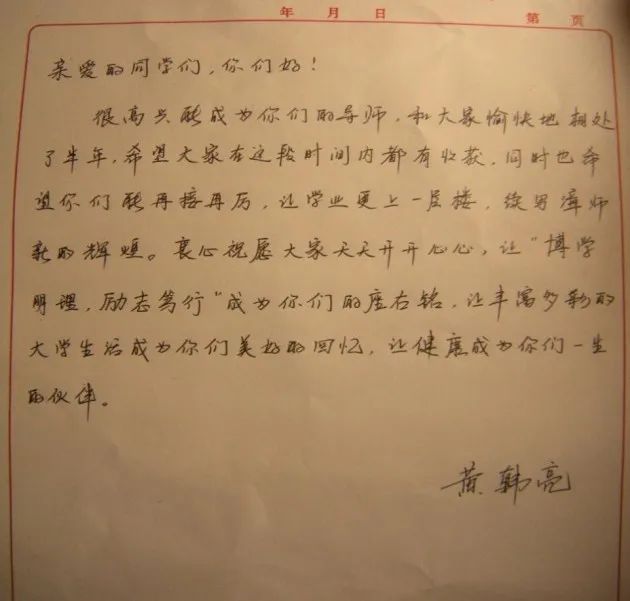 年 月 日
第 页
亲爱的同学们，你们好！
很高兴能成为你们的导师，和大家愉快地相处
了半年，希望大家在这段时间内都有收获，同时也希
望你们能再接再厉，让学业更上一层楼，续写漳师
新的辉煌。衷心祝愿大家天天开开心心，让“博学
明理，励志笃行”成为你们的座右铭，让丰富多彩的
大学生活成为你们美好的回忆，让健康成为你们一生
的伙伴。
黄韩亮